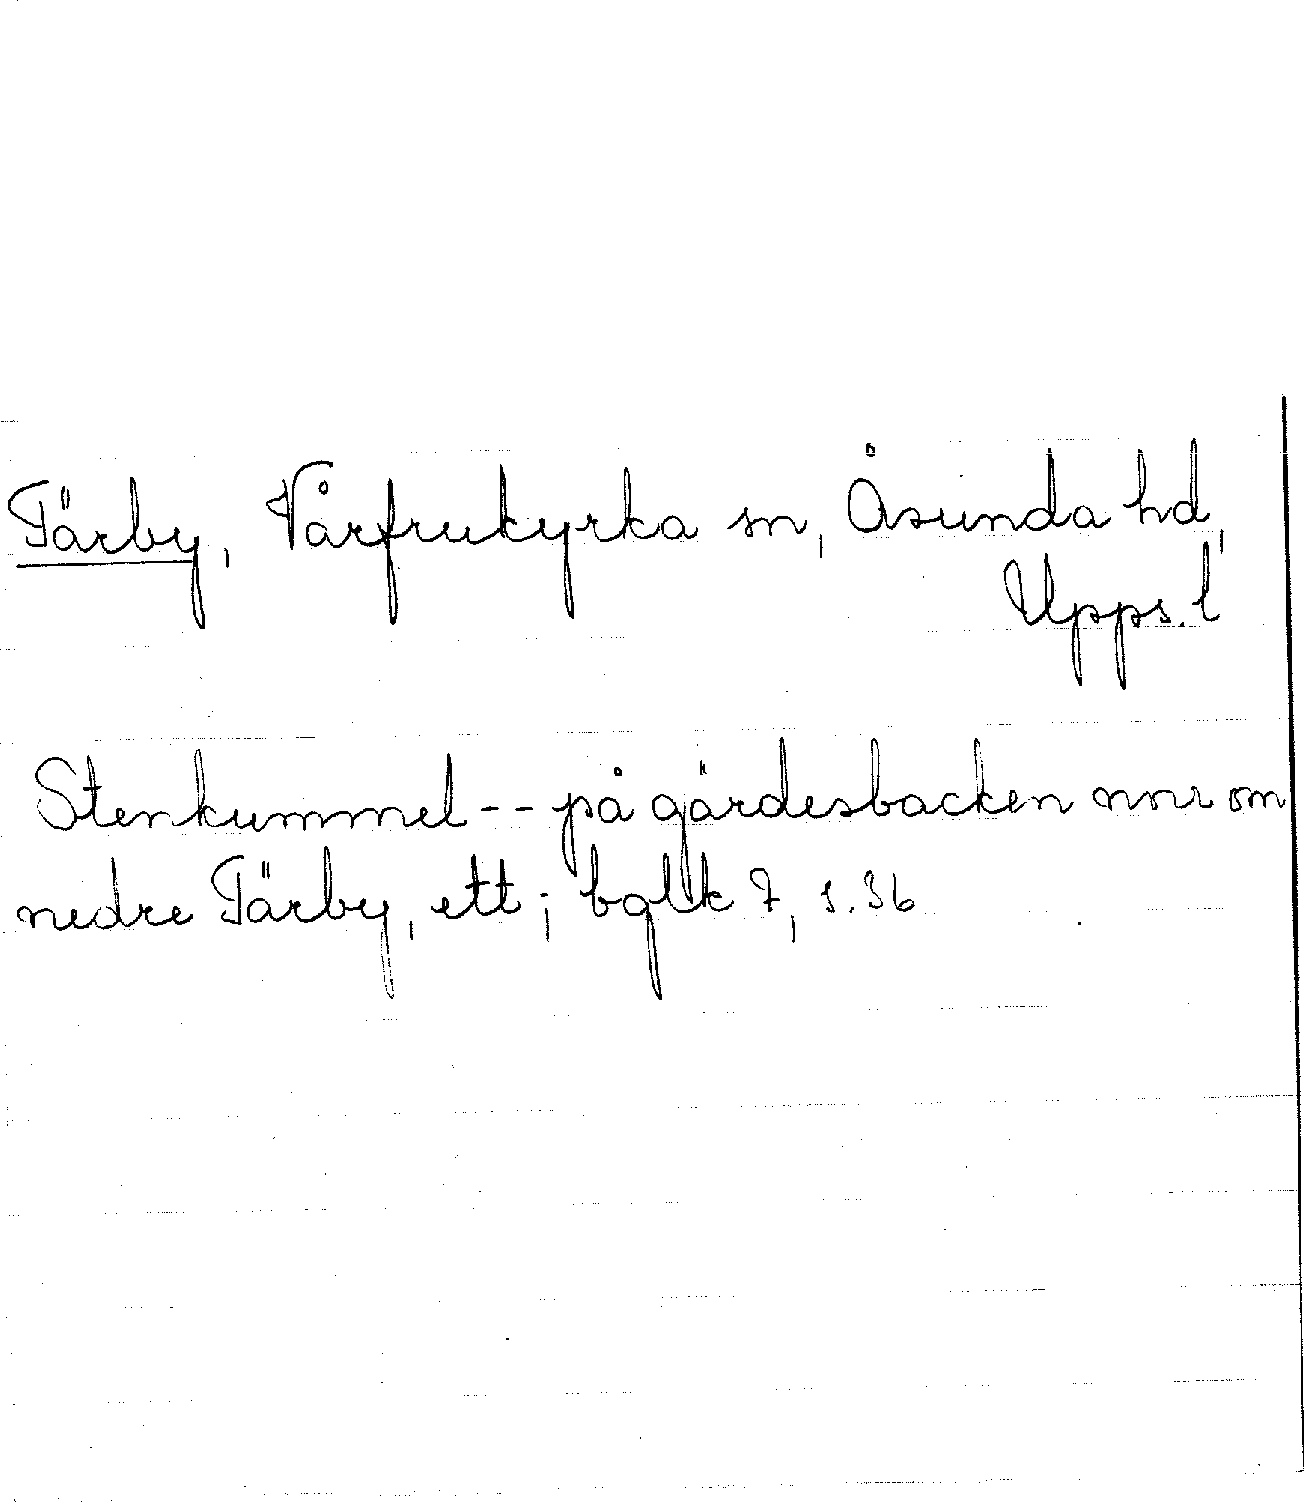 Tärby, Vårfrukyrka sn, Åsunda hd,
Upps. l
Stenkummel -- på gärdesbacken nnr om
nedre Tärby, ett; bglk 7, s. 36